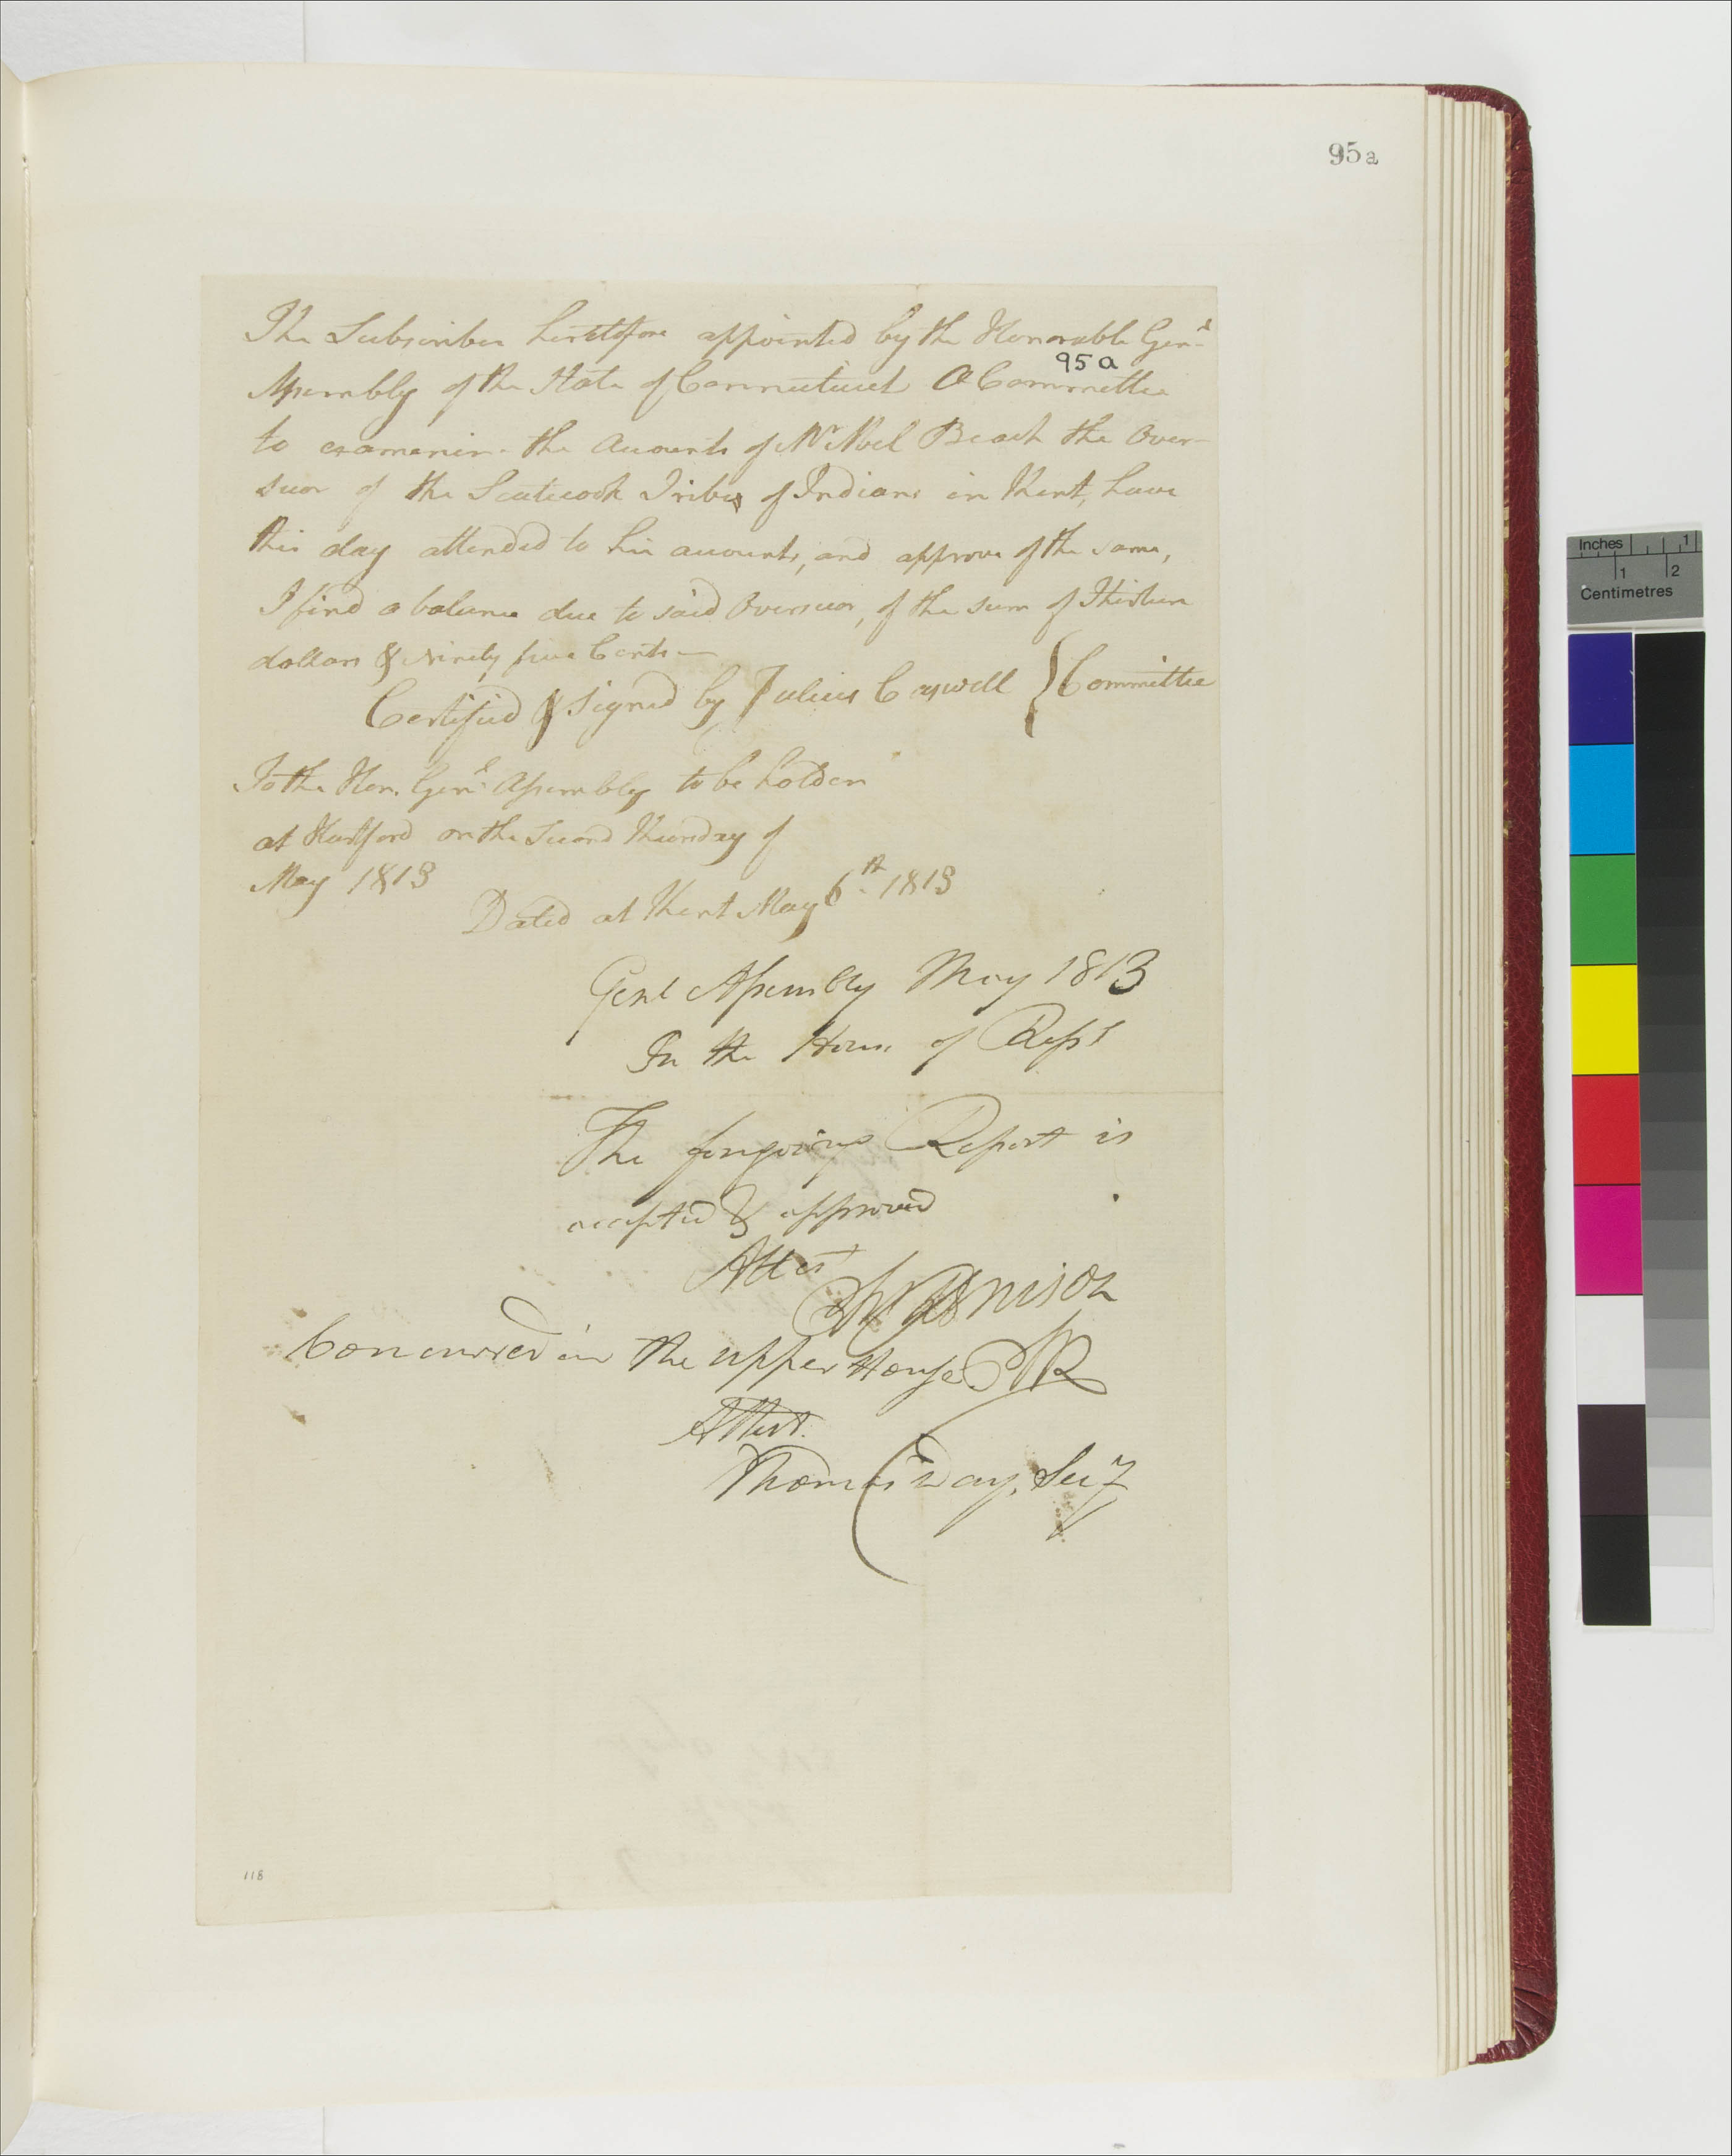 95a
The Subscriber heretofore appointed by the Honorable Genl
95a
Assembly of the State of Connecticut A Committee
to examenin the Accounts of Mr Abel Beach the Over-
seeor of the Scaticook Tribe of Indians in Kent, have
this day attended to his accounts, and approve of the same,
I find a balance due to said Overseeor, of the sum of Thirteen
dollars & Ninety five Cents —
Certified & Signed by Julius Caswell } Committee
To the Hon. Genl Assembly to be holden
at Hartford on the Second Thursday of
May 1813
Dated at Kent May 6th 1813
Genl Assembly May 1813
In the House of Reps
The foregoing Report is
accepted & approved
Attest
Concurred in the upper House
Attest.
Thomas Day, Secy
118
Inches 1
1 2
Centimetres